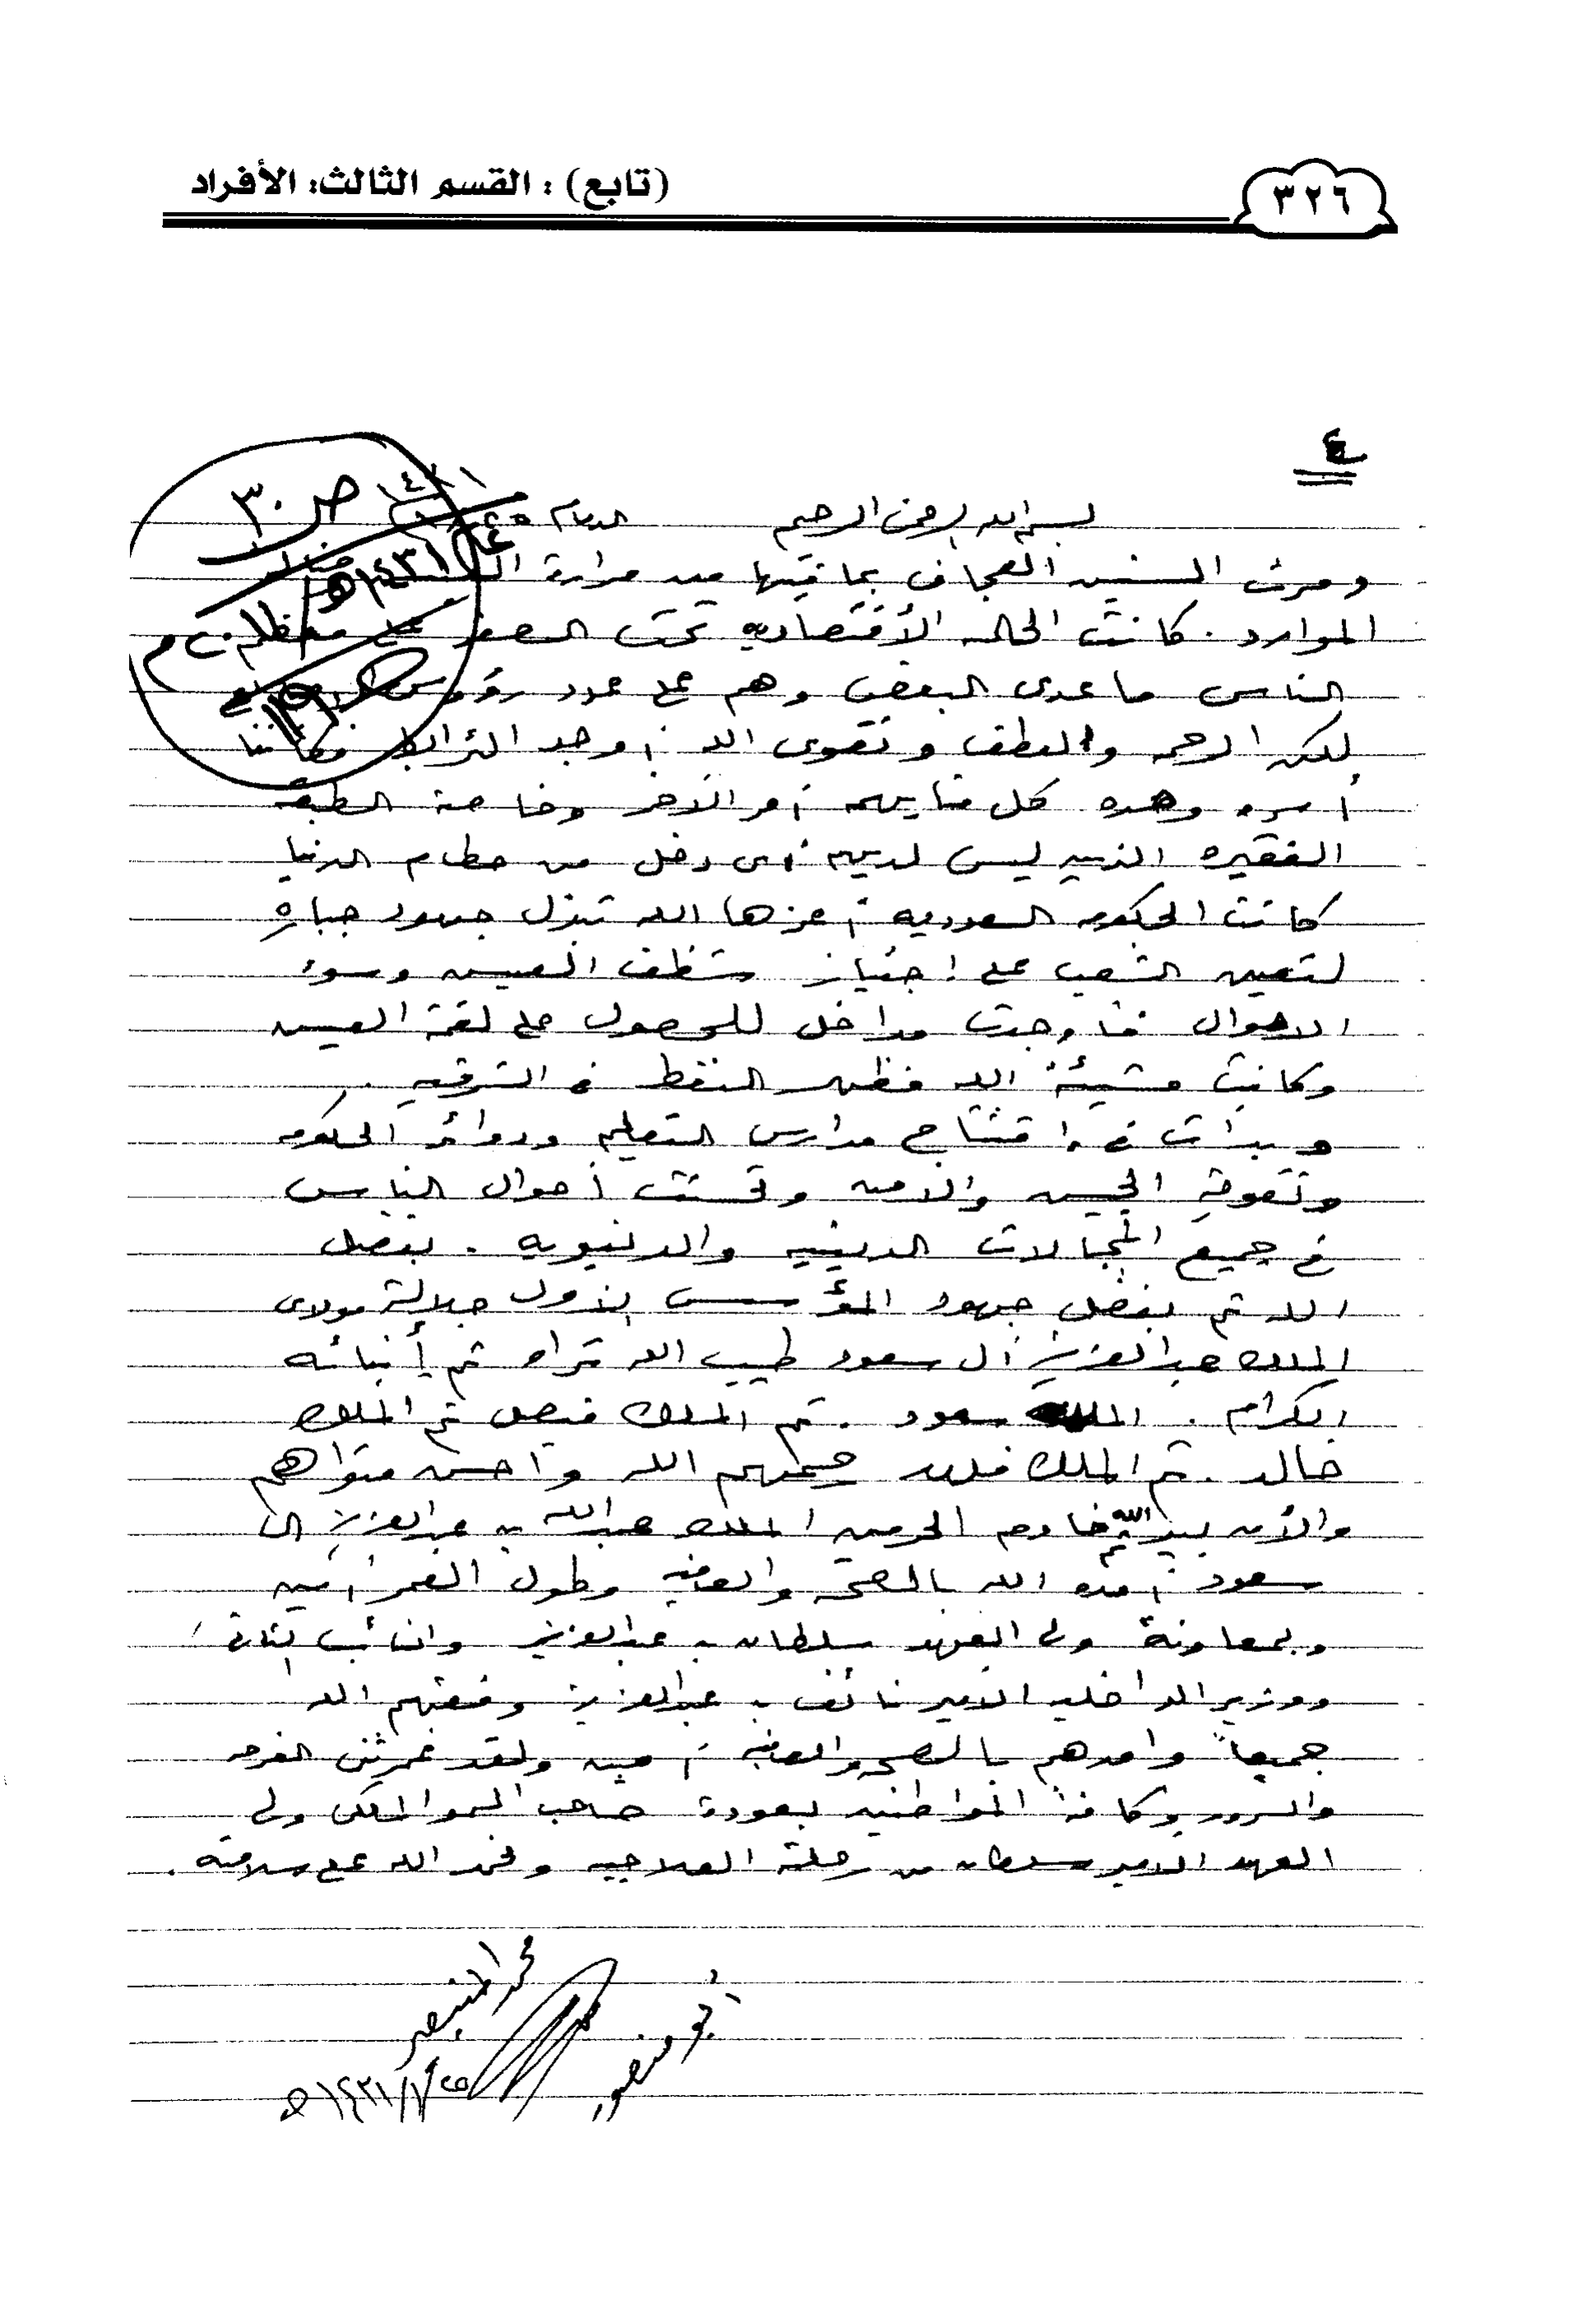 ٣٢٦
(تابع) : القسم الثالث: الأفراد
٤
بسم الله الرحمن الرحيم الدمام
ص ٣٠
ومرت السنين العجاف بما فيها من مرارة
الموارد . كانت الحاله الأقتصاديه تحت الصفر على معظم
الناس ماعدى البعض وهم على عدد رؤوس
لكن الرحمه والعطف وتقوى الله أوجد الترابط فكأننا
أسره وحده كل منا يهمه أمر الآخر وخاصة الطبقه
الفقيره الذين ليس لديهم أى دخل من حطام الدنيا
كانت الحكومه السعوديه أعزها الله تبذل جهود جباره
لتعين الشعب على إجتياز شظف العيش وسوء
الاحوال فأوجدت مداخل للحصول على لقمة العيش
وكانت مشيئة الله فظهر النفط في الشرقيه .
وبدأت في افتتاح مدارس التعليم ودوائر الحكومه
وتقوية الجيش والامن وتحسنت أحوال الناس
في جميع المجالات الدينيه والدنيويه . بفضل
الله ثم بفضل جهود المؤسس الاول جلالة مولاى
الملك عبدالعزيز آل سعود طيب الله ثراه ثم أبنائه
الكرام . الملك سعود . ثم الملك فيصل ثم الملك
خالد . ثم الملك فهد رحمهم الله واحسن مثواهم
والأن بيد الله ثم خادم الحرمين الملك عبدالله بن عبدالعزيز ال
سعود أمده الله بالصحة والعافيه وطول العمر آمين
وبمعاونة ولى العهد سلطان بن عبدالعزيز والنائب الثانى
ووزير الداخليه الامير نائف بن عبدالعزيز وفقهم الله
جميعاً وامدهم بالصحه والعافيه آمين ولقد غمرتنى الفرحه
والسرور وكافة المواطنين بعودة صاحب السمو الملكى ولي
العهد الامير سلطان من رحلته العلاجيه ونحمد الله على سلامته .
أبو منصور